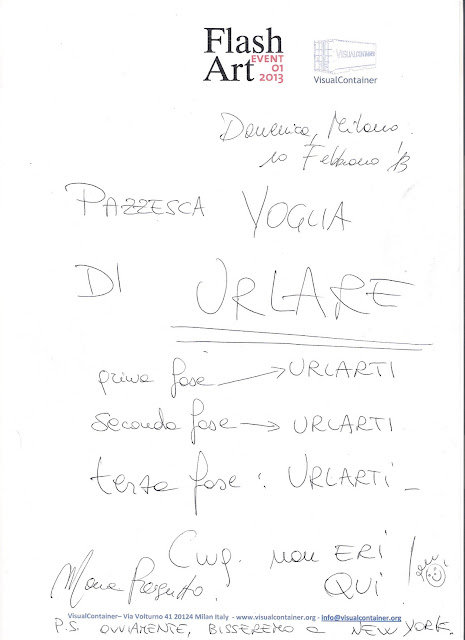 Flash
Art EVENT
01
2013
VISUALCONTAINER
VisualContainer
Domenica, Milano.
10 Febbraio '13
PAZZESCA VOGLIA
DI URLARE
prima fase → URLARTI
seconda fase → URLARTI
terza fase : URLARTI _
non ERI
QUI
VisualContainer– Via Volturno 41 20124 Milan Italy - www.visualcontainer.org - info@visualcontainer.org
P.S. OVVIAMENTE, BISSEREMO A NEW YORK.